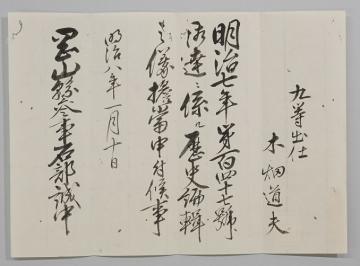 九等出仕
木畑道夫
明治七年第百四十七號
御達ニ係ル歴史編輯
之儀擔當申付候事
明治八年一月十日
岡山縣参事石部誠中